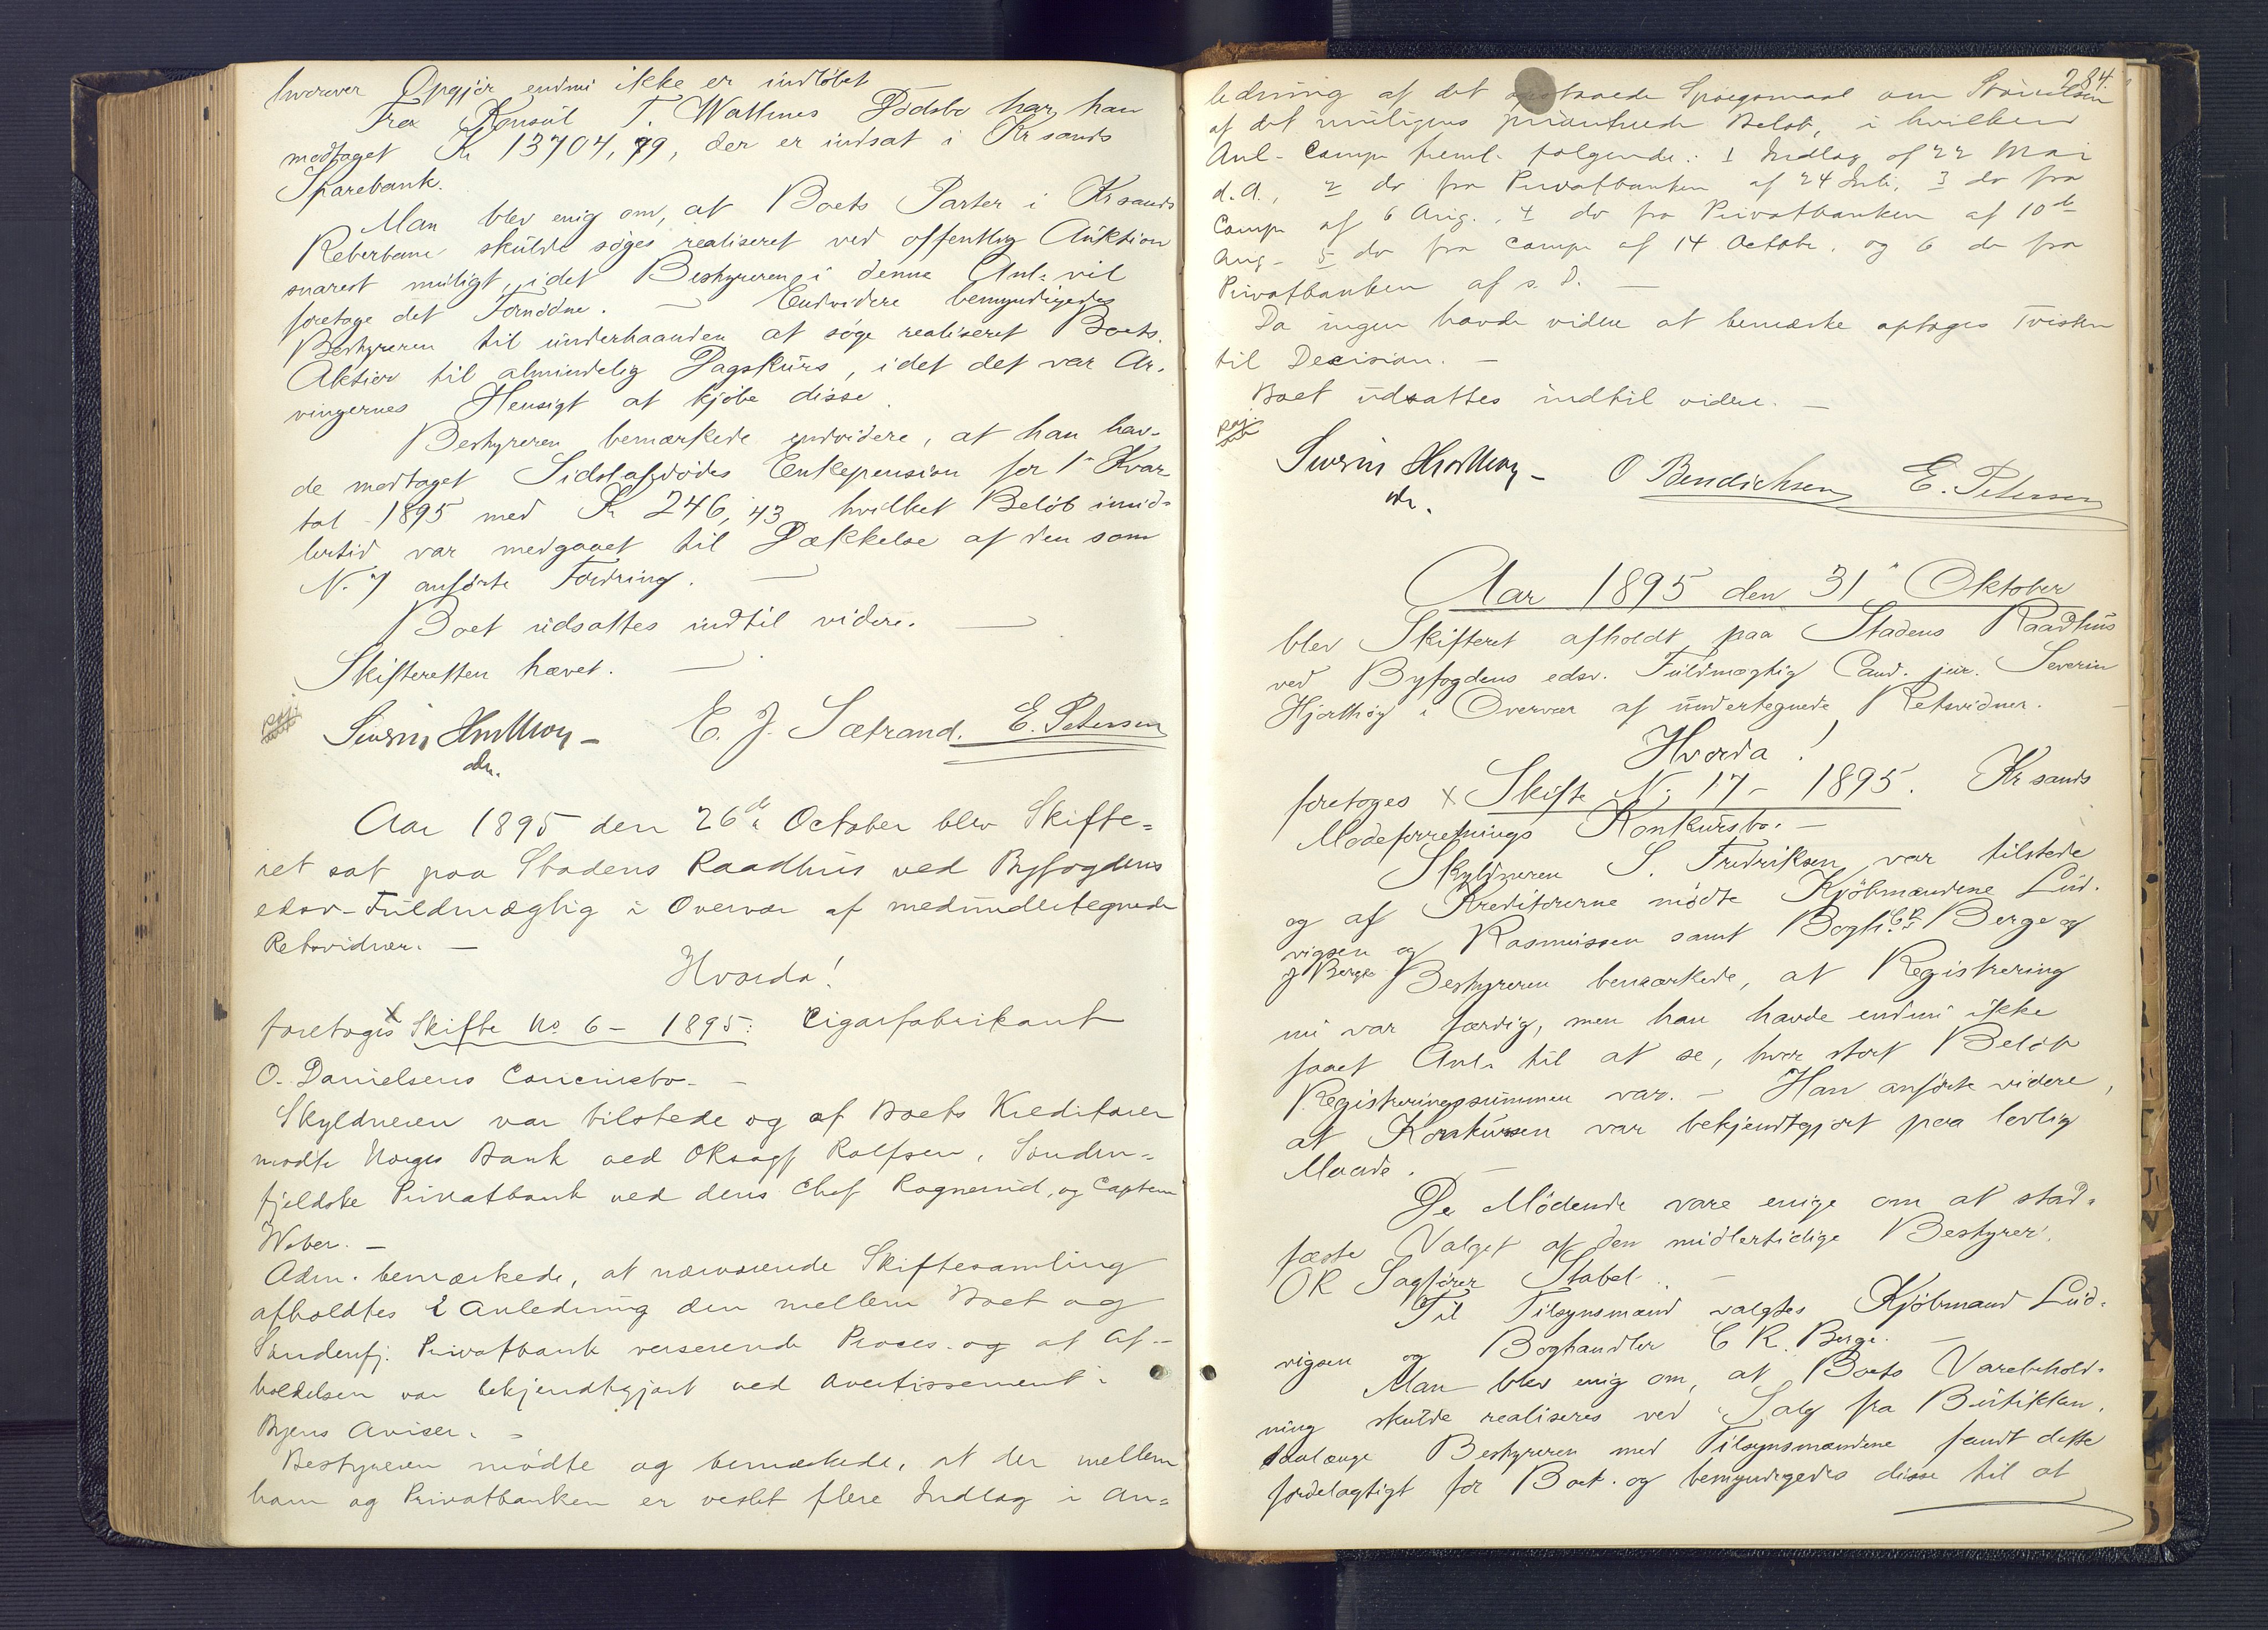 hvorover Opgjør endnu ikke er indløbet
Fra Konsul T. Wattnes Dødsbo har han
modtaget Kr 13704,79, der er indsat i Krsands
Sparebank.
Man blev enig om, at Boets Parter i Krsands
Reberbane skulde søges realiseret ved offentlig Auktion
snarest muligt, idet Bestyreren i denne Anl. vil
foretage det Fornødne. — Endvidere bemyndigedes
Bestyreren til underhaanden at søge realiseret Boets
Aktier til almindelig Dagskurs, idet det var Ar-
vingernes Hensigt at kjøbe disse.
Bestyreren bemærkede endvidere, at han hav-
de modtaget Sidstafdødes Enkepension for 1ste Kvar
tal 1895 med Kr 246,43 hvilket Beløb imid-
lertid var medgaaet til Dækkelse af den som
N. 7 anførte Fordring. —
Boet udsattes indtil videre. —
Skifteretten hævet. —
Severin Hjorthøy — E. J. Sætrand. E. Petersen
Aar 1895 den 26de October blev Skifte-
ret sat paa Stadens Raadhus ved Byfogdens
edsv. Fuldmægtig i Overvær af medundertegnede
Retsvidner. —
Hvorda!
foretoges x Skifte No 6 – 1895: Cigarfabrikant
O. Danielsens Concursbo. —
Skyldneren var tilstede og af Boets Kreditorer
mødte Norges Bank ved ORsagf Rolfsen, Sønden-
fjeldske Privatbank ved dens Chef Rognerud, og Captein
Weber. —
Adm. bemærkede, at nærværende Skiftesamling
afholdtes i Anledning den mellem Boet og
Søndenfj. Privatbank verserende Proces og at Af-
holdelsen var bekjendtgjort ved Avertissement i
Byens Aviser. —
Bestyreren mødte og bemærkede, at der mellem
ham og Privatbanken er vexlet flere Indlæg i An-
284.
ledning af det opstaaede Spørgsmaal om Størrelsen
af det muligens prioriterede Beløb, i hvilken
Anl. Comp. freml. følgende: 1 Indlæg af 22 Mai
d. A., 2 do fra Privatbanken af 24 Juli, 3 do fra
Comp af 6 Aug., 4 do fra Privatbanken af 10de
Aug. 5 do fra Comp af 14 Octobr. og 6 do fra
Privatbanken af s. D. —
Da ingen havde videre at bemærke optages Tvisten
til Decision. —
Boet udsattes indtil videre. —
Severin Hjorthøy — O Bendichsen E. Petersen
Aar 1895 den 31. Oktober
blev Skifteret afholdt paa Stadens Raadhus
ved Byfogdens edsv. Fuldmægtig Cand. jur. Severin
Hjorthøy i Overvær af undertegnede Retsvidner.
Hvorda!
foretoges x Skifte N. 17 – 1895. Krsands
Modeforretnings Konkursbo. —
Skyldneren S. Fredriksen var tilstede
og af Kreditorerne mødte Kjøbmændene Lud-
vigsen og Rasmussen samt Bogh. C R Berge og
J Berge Bestyreren bemærkede, at Registrering
nu var færdig, men han havde endnu ikke
faaet Anl. til at se, hvor stort Beløb
Registreringssummen var. — Han anførte videre,
at Konkursen var bekjendtgjort paa lovlig
Maade. —
De Mødende vare enige om at stad-
fæste Valget af den midlertidige Bestyrer,
OR Sagfører Stabel. —
Til Tilsynsmænd valgtes Kjøbmand Lud-
vigsen og Boghandler C R. Berge. —
Man blev enig om, at Boets Varebehold-
ning skulde realiseres ved Salg fra Butikken,
saalænge Bestyreren med Tilsynsmændene fandt dette
fordelagtigt for Boet. og bemyndigedes disse til at